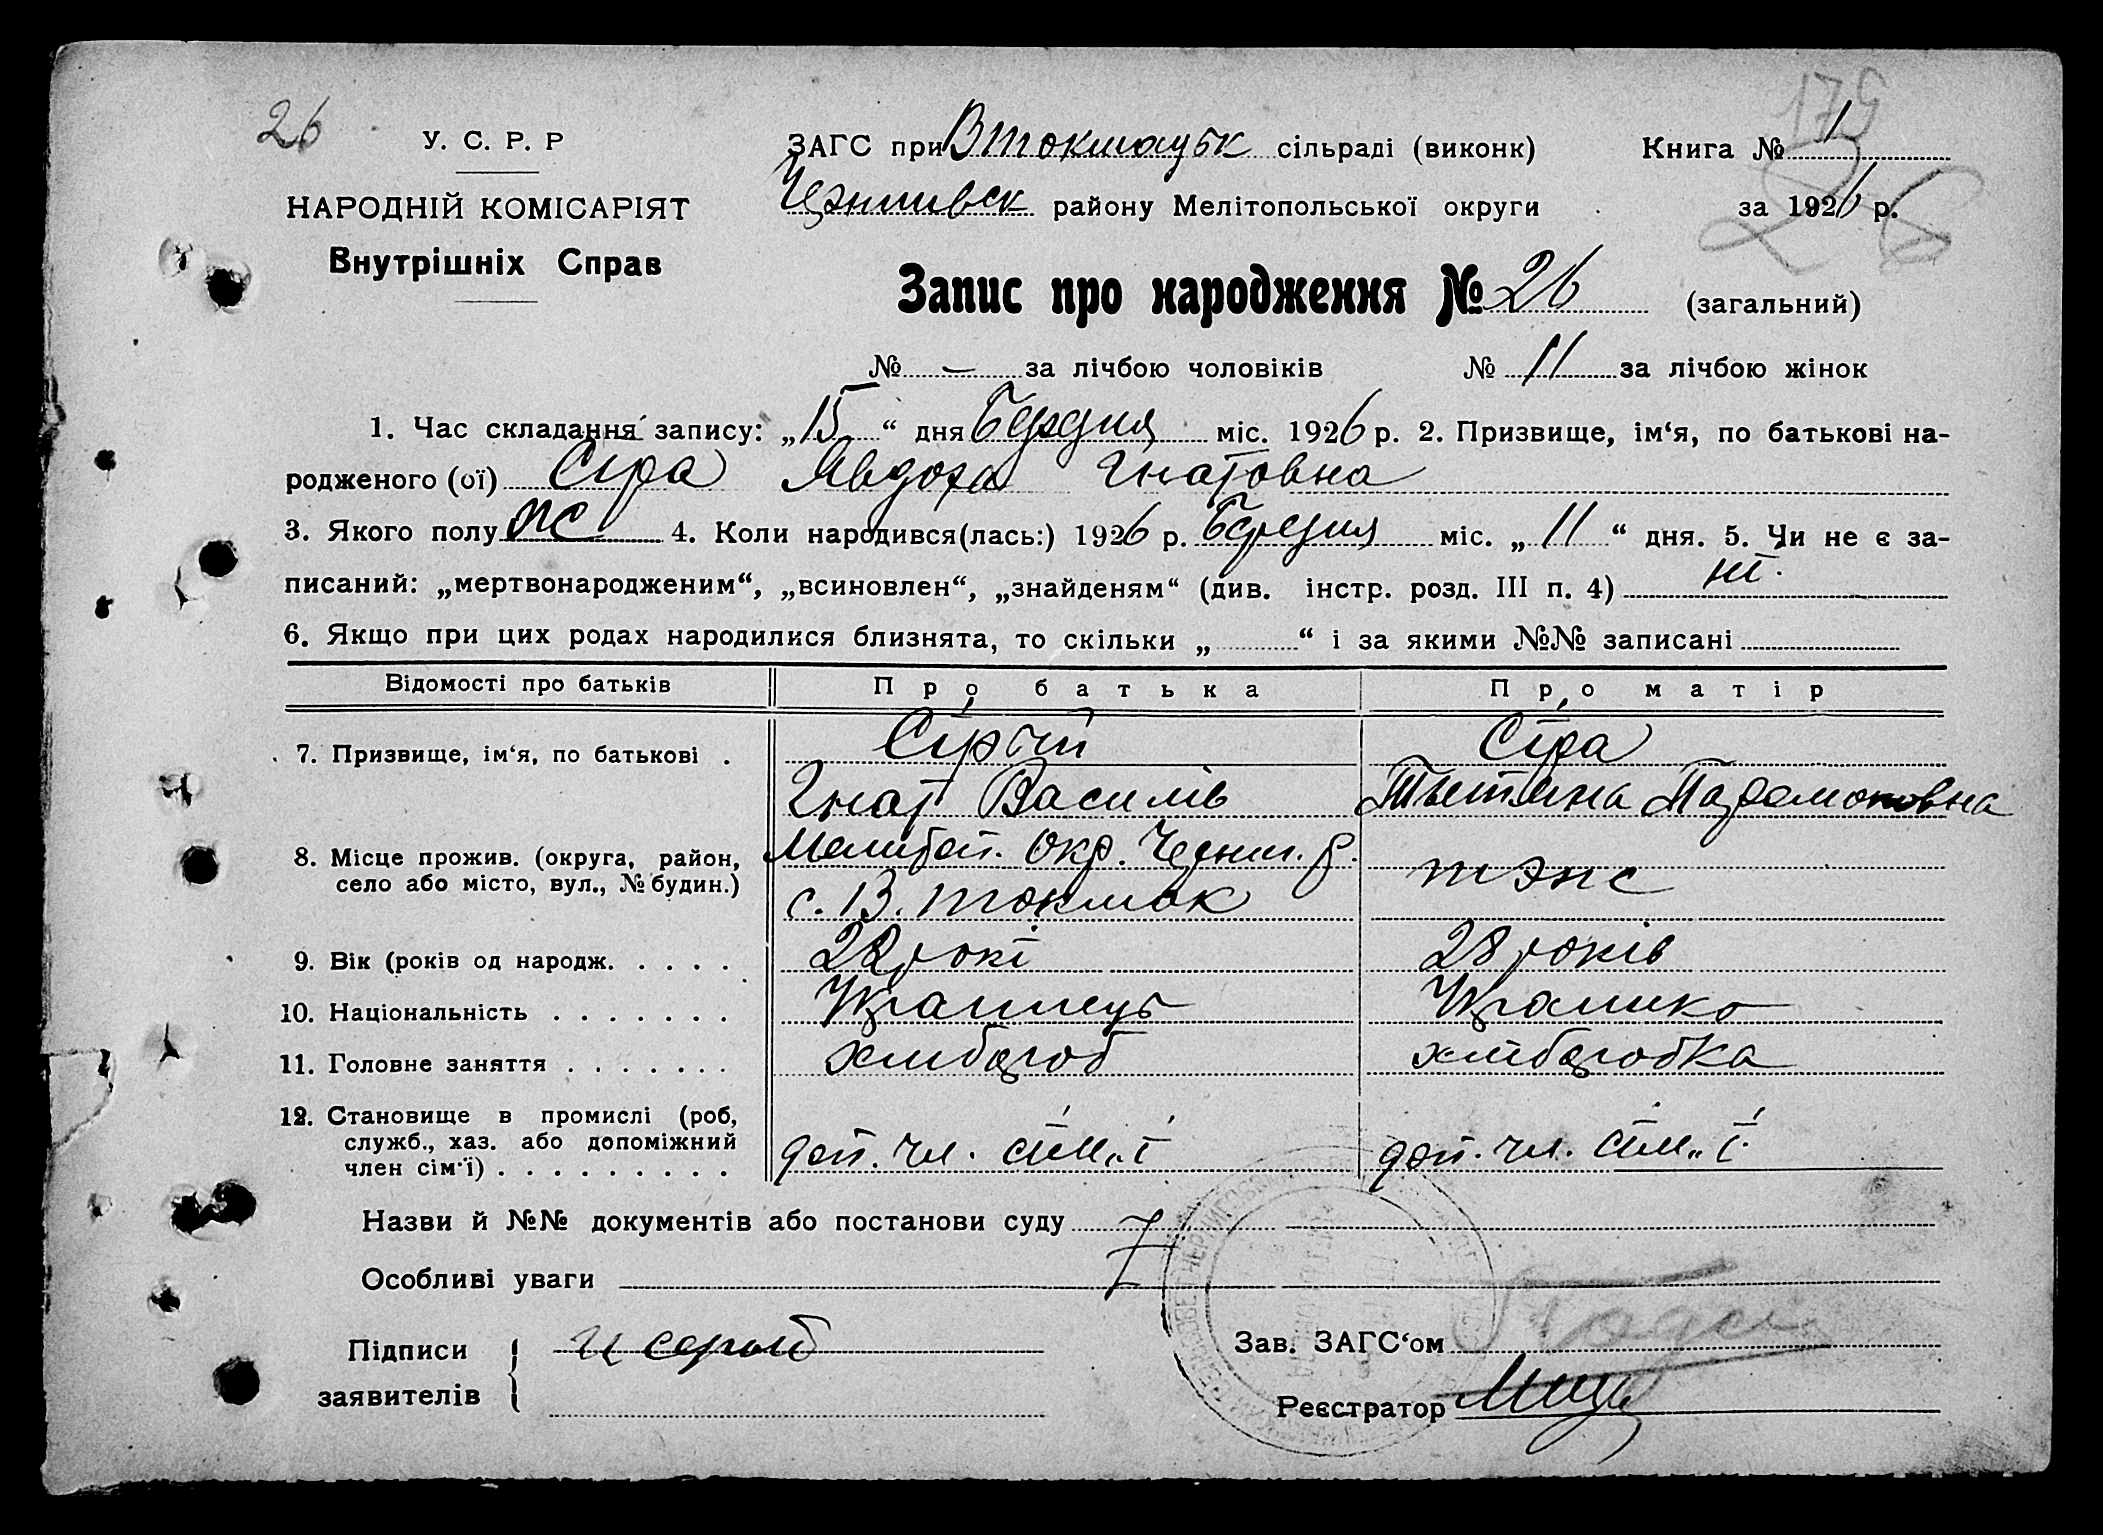 26
175
26
У. С. Р. Р
НАРОДНІЙ КОМІСАРІЯТ
Внутрішніх Справ
ЗАГС при Втокмацьк сільраді (виконк) Книга № 1
району Мелітопольської округи за 1926 р.
Запис про народження № 26 (загальний)
№ — за лічбою чоловіків № 11 за лічбою жінок
1. Час складання запису: „15“ дня Березня міс. 1926 р. 2. Призвище, ім‘я, по батькові на-
родженого (ої) Сіра Явдоха Гнатовна
3. Якого полу жс 4. Коли народився(лась:) 1926 р. Березня міс. „11“ дня. 5. Чи не є за-
писаний: „мертвонародженим“, „всиновлен“, „знайденям“ (див. інстр. розд. III п. 4) ні.
6. Якщо при цих родах народилися близнята, то скільки „ “ і за якими №№ записані
Відомості про батьків Про батька Про матір
7. Призвище, ім‘я, по батькові . Сірий Сіра
Гнат Василів Тытяна Парамоновна
8. Місце прожив. (округа, район, село або місто, вул., № будин.) Мелитоп. Окр. Черниг. р.
с. В. токмак тэжс
9. Вік (років од народж. . . . . 22 рокі 28 років
10. Національність . . . . . . . Украинець Украинка
11. Головне заняття . . . . . . . хлибороб хлиборобка
12. Становище в промислі (роб,
служб., хаз. або допоміжний
член сім‘ї) . . . . . . . . . доп. чл. сім„ї доп. чл. сім„ї
Назви й №№ документів або постанови суду
Особливі уваги
Підписи
заявителів
Зав. ЗАГС‘ом
Реєстратор